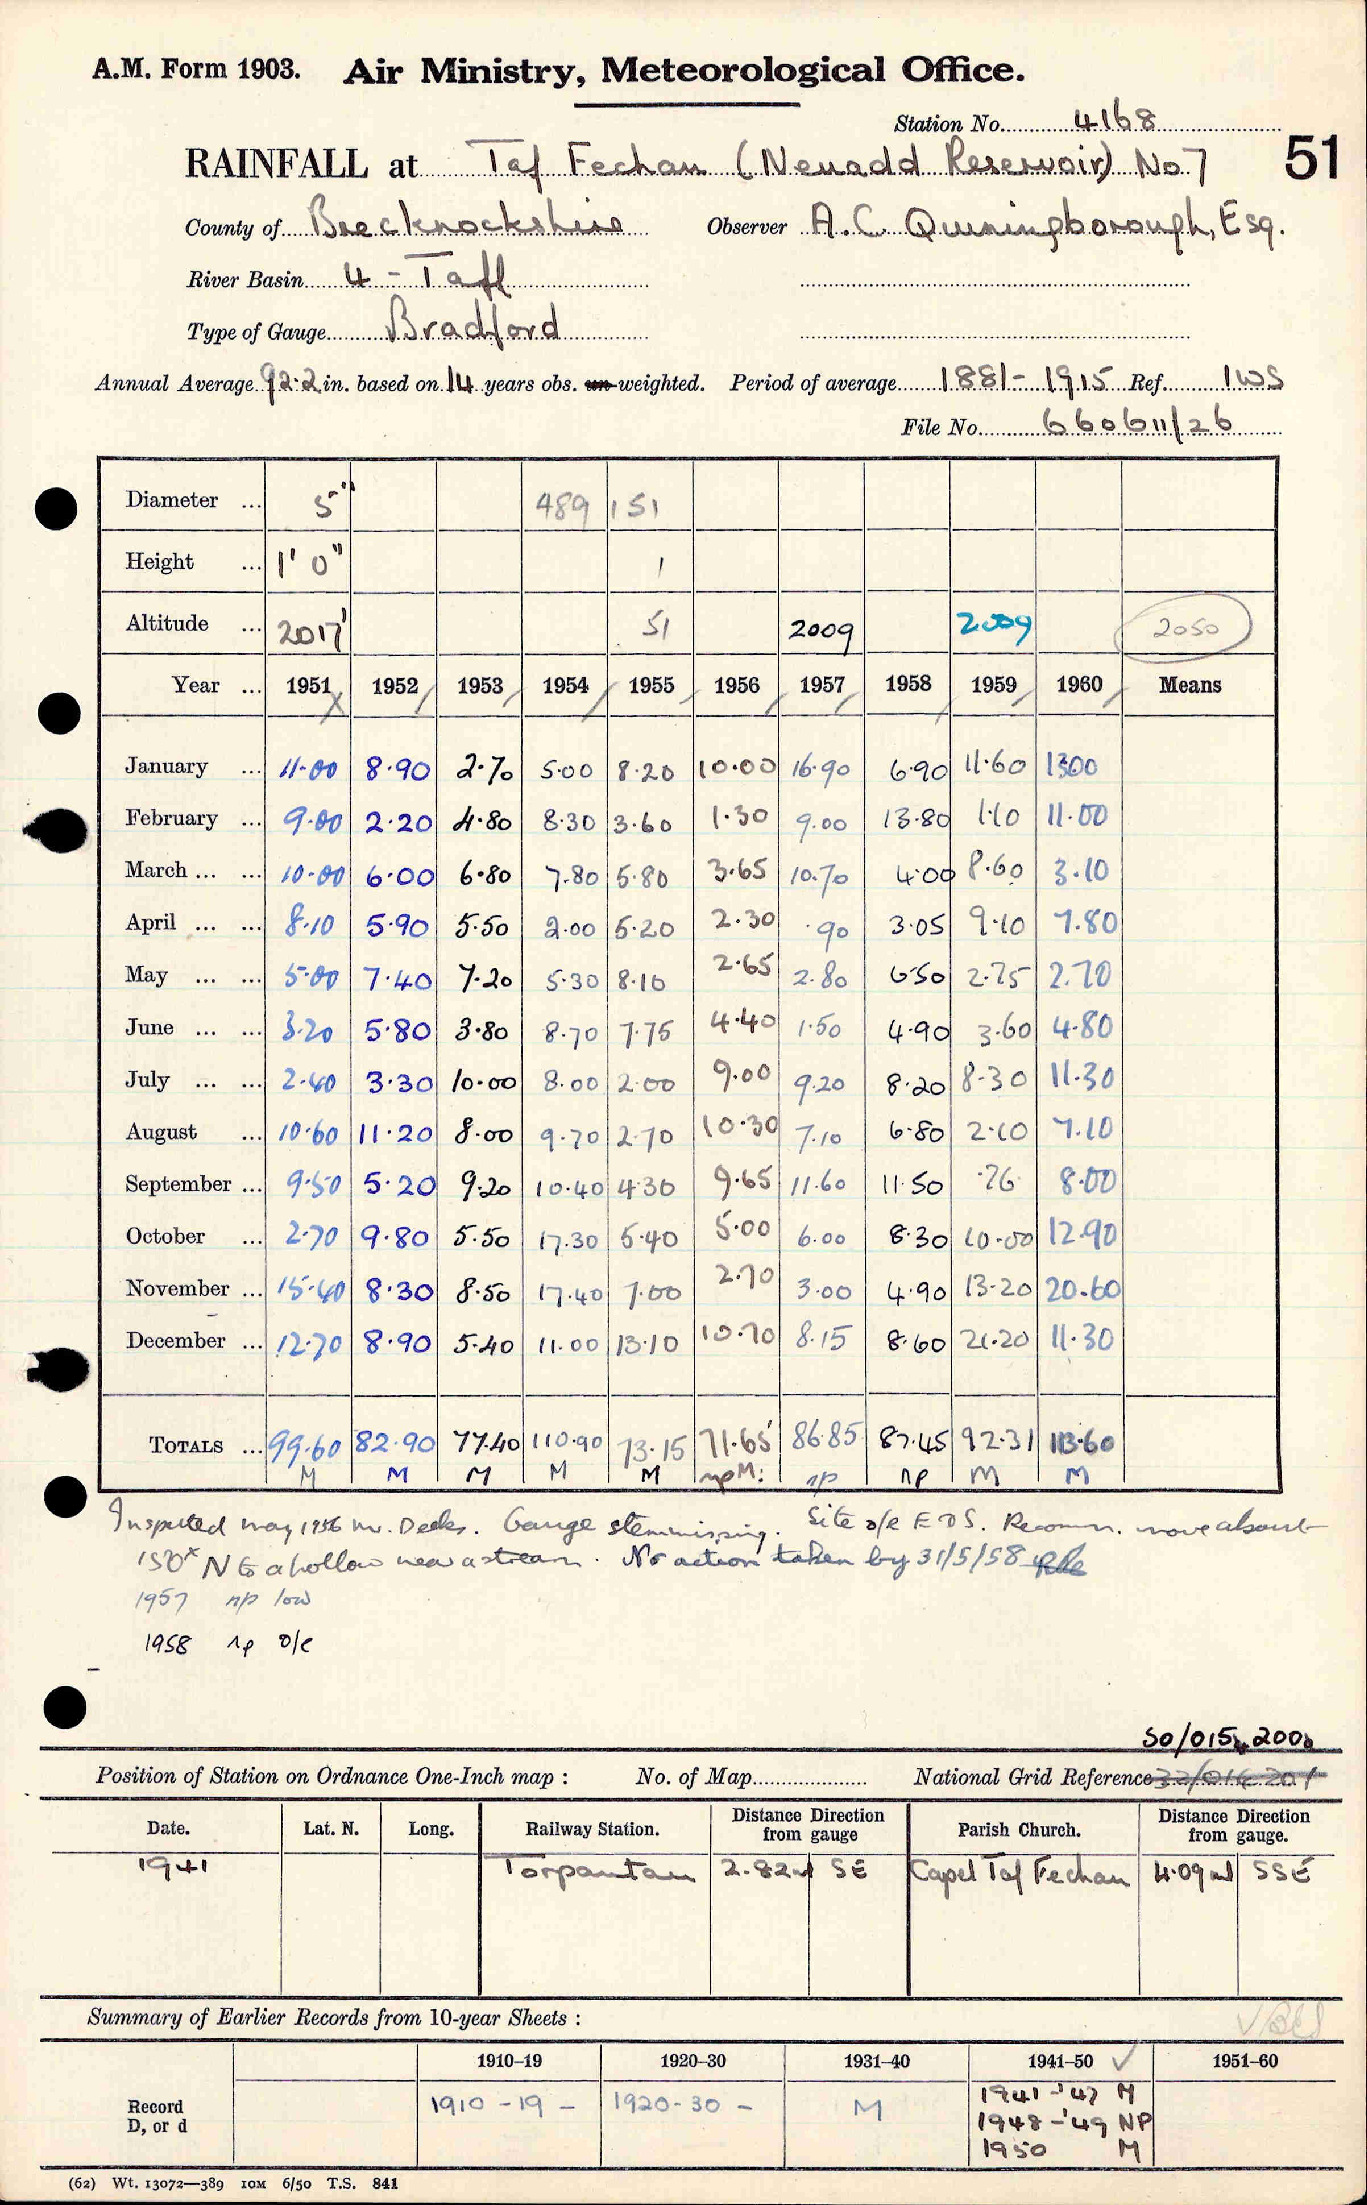 A.M. Form 1903. Air Ministry, Meteorological Office.
Station No. 4168
RAINFALL at Taf Fechan (Neuadd Reservoir) No 7 51
County of Brecknockshire Observer A.C. Quiningborough, Esq.
River Basin 4 - Taff
Type of Gauge Bradford
Annual Average 92.2 in. based on 14 years obs. un-weighted. Period of average 1881 - 1915 Ref. IWS
File No. 660611/26
Diameter ... 5" 489 151
Height ... 1' 0" 1
Altitude ... 2017' 51 2009 2009 2050
Year ... 1951 1952 1953 1954 1955 1956 1957 1958 1959 1960 Means
January ... 11.00 8.90 2.70 5.00 8.20 10.00 16.90 6.90 11.60 1300
February ... 9.00 2.20 4.80 8.30 3.60 1.30 9.00 13.80 1.10 11.00
March ... ... 10.00 6.00 6.80 7.80 5.80 3.65 10.70 4.00 8.60 3.10
April ... ... 8.10 5.90 5.50 2.00 5.20 2.30 .90 3.05 9.10 7.80
May ... ... 5.00 7.40 7.20 5.30 8.10 2.65 2.80 6.50 2.75 2.70
June ... ... 3.20 5.80 3.80 8.70 7.75 4.40 1.50 4.90 3.60 4.80
July ... ... 2.40 3.30 10.00 8.00 2.00 9.00 9.20 8.20 8.30 11.30
August ... 10.60 11.20 8.00 9.70 2.70 10.30 7.10 6.80 2.10 7.10
September ... 9.50 5.20 9.20 10.40 4.30 9.65 11.60 11.50 .76 8.00
October ... 2.70 9.80 5.50 17.30 5.40 5.00 6.00 8.30 10.00 12.90
November ... 15.40 8.30 8.50 17.40 7.00 2.70 3.00 4.90 13.20 20.60
December ... 12.70 8.90 5.40 11.00 13.10 10.70 8.15 8.60 21.20 11.30
TOTALS ... 99.60 82.90 77.40 110.90 73.15 71.65 86.85 87.45 92.31 113.60
M M M M M npM. np np M M
Inspected May 1956 Mr. Deeks. Gauge stem missing. Site o/e E & S. Recomm. move about
150x N to a hollow near a stream. No action taken by 31/5/58
1957 np low
1958 np o/e
SO/015 200
Position of Station on Ordnance One-Inch map : No. of Map National Grid Reference 32/014 201
Date. Lat. N. Long. Railway Station. Distance Direction from gauge Parish Church. Distance Direction from gauge.
1941 Torpantau 2.82 m SE Capel Taf Fechan 4.09 m SSE
Summary of Earlier Records from 10-year Sheets :
1910–19 1920–30 1931–40 1941–50 1951–60
Record D, or d 1910 - 19 - 1920 - 30 - M 1941 - '47 M
1948 - '49 NP
1950 M
(62) Wt. 13072—389 10M 6/50 T.S. 841